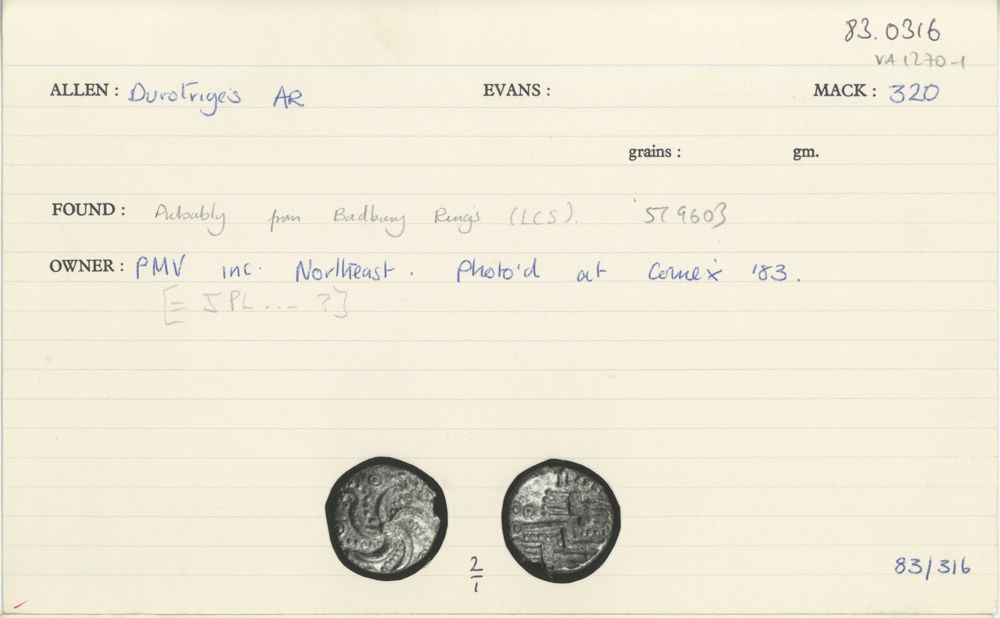 83.0316
VA 1270-1
ALLEN : Durotriges AR EVANS : MACK : 320
grains : gm.
FOUND : Probably from Badbury Rings (LCS). ST 9603
OWNER : PMV inc. Northeast. Photo'd at Comex '83.
[= SPL ... ?]
2/1
83/316